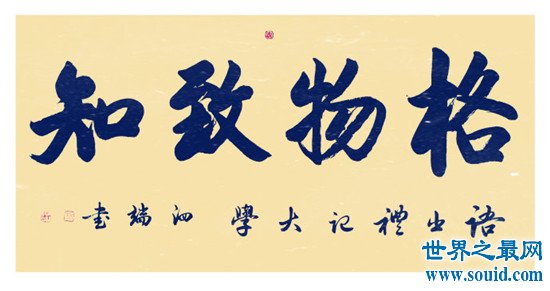 格物致知
語出禮記大學 泗端書
世界之最网
www.souid.com